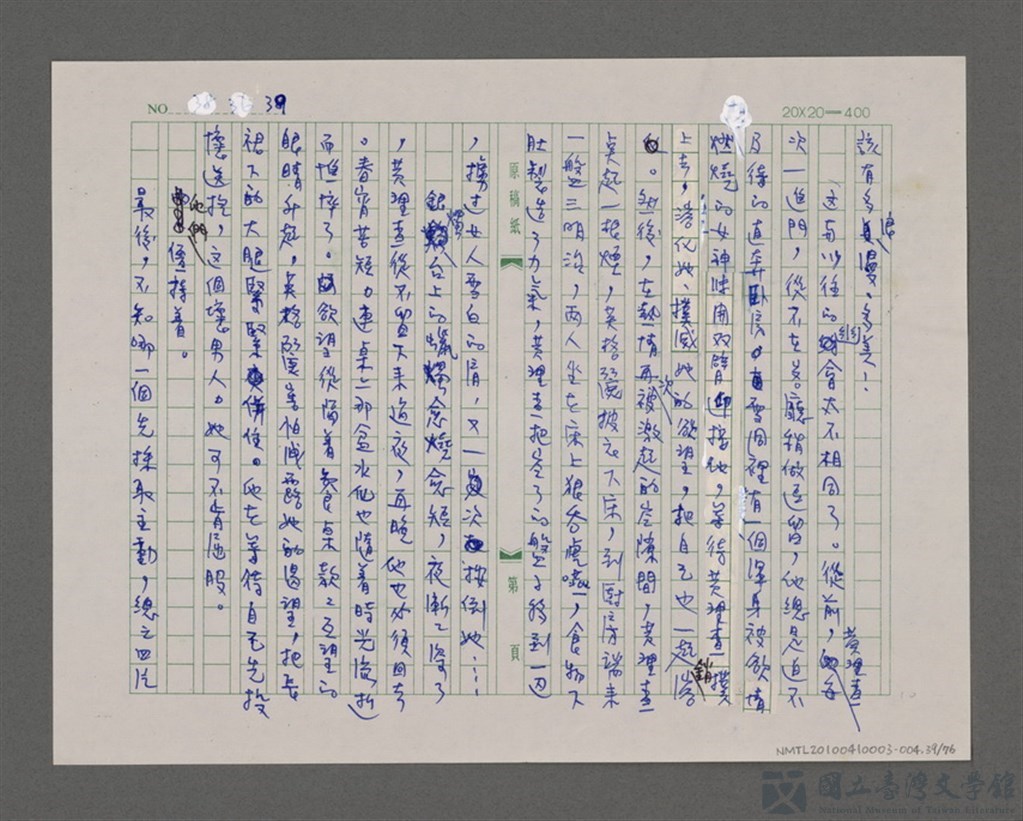 NO 39
20X20=400
該有多浪漫、多美！
這與以往的幽會太不相同了。從前，黃理查每
次一進門，從不在客廳稍做逗留，他總是迫不
及待的直奔臥房，雪園裡有一個渾身被慾情
燃燒的女神陳開双臂迎接他，等待黃理查撲
上去，溶化她、撲滅她的慾望，把自己也一起銷溶
。然後，在熱情再次被激起的空隙間，黃理查
點起一根煙，英格麗披衣下床，到厨房端来
一盤三明治，两人坐在床上狠吞虎嚥，食物下
肚製造了力氣，黃理查把空了的盤子移到一边
原稿紙
第 頁
，摟过女人雪白的肩，又一次按倒她……
銀燭台上的蠟燭愈燒愈短，夜漸漸深了
，黃理查從不留下来過夜，再晚他也必須回去
。春宵苦短，連桌上那盆水仙也随着時光流逝
而憔悴了。慾望從隔着餐桌款款互望的
眼睛升起，英格麗害怕洩露她的渴望，把長
裙下的大腿緊緊併住。他在等待自己先投
懷送抱，這個壞男人，她可不肯屈服。
他們僵持着。
最後，不知哪一個先採取主動，總之四片
NMTL20100410003-004.39/76
國立臺灣文學館
National Museum of Taiwan Literature